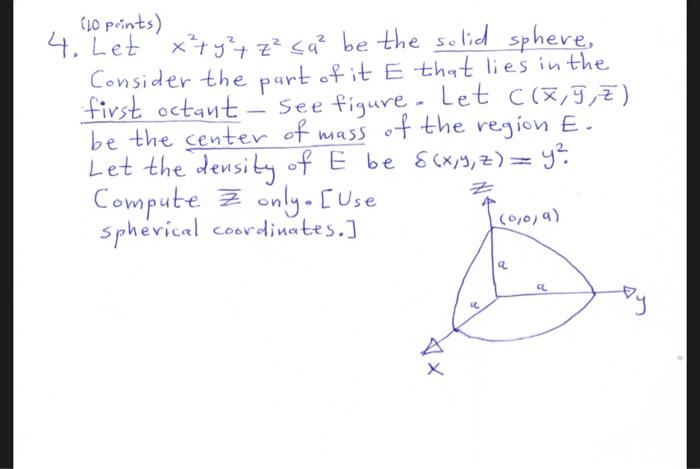 (10 points)
4. Let x²+y²+z² ≤a² be the solid sphere,
Consider the part of it E that lies in the
first octant – see figure. Let C(x̅,y̅,z̅)
be the center of mass of the region E.
Let the density of E be δ(x,y,z)= y².
Compute z̅ only. [Use
spherical coordinates.]
z
(0,0,a)
a
a
a
y
x